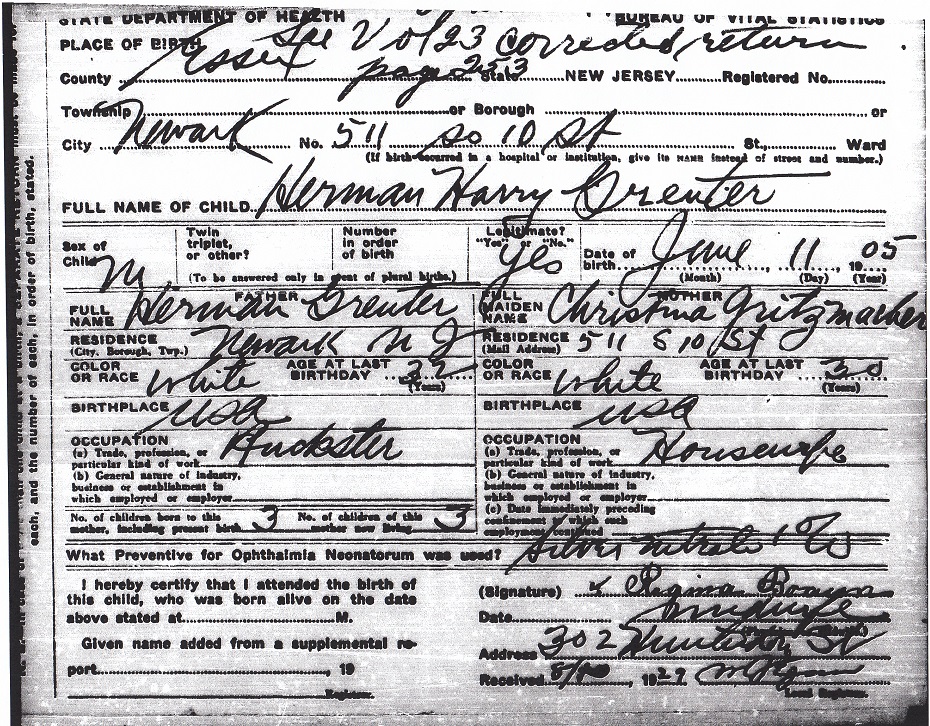 STATE DEPARTMENT OF HEALTH BUREAU OF VITAL STATISTICS
PLACE OF BIRTH See Vol 23 corrected return
County Essex page 253 State NEW JERSEY Registered No.
Township or Borough or
City Newark No. 511 So 10 St St., Ward
(If birth occurred in a hospital or institution, give its NAME instead of street and number.)
FULL NAME OF CHILD Herman Harry Greuter
Sex of Child M Twin triplet, or other? Number in order of birth Legitimate? "Yes" or "No." Yes Date of birth June 11 1905
(To be answered only in event of plural births.) (Month) (Day) (Year)
FATHER MOTHER
FULL NAME Herman Greuter FULL MAIDEN NAME Christina Gritzmacher
RESIDENCE (City, Borough, Twp.) Newark N J RESIDENCE (Mail Address) 511 S 10 St
COLOR OR RACE White AGE AT LAST BIRTHDAY 32 (Years) COLOR OR RACE White AGE AT LAST BIRTHDAY 30 (Years)
BIRTHPLACE USA BIRTHPLACE USA
OCCUPATION Huckster OCCUPATION Housewife
(a) Trade, profession, or particular kind of work (a) Trade, profession, or particular kind of work
(b) General nature of industry, business or establishment in which employed or employer (b) General nature of industry, business or establishment in which employed or employer
(c) Date immediately preceding confinement of which such employment
No. of children born to this mother, including present birth 3 No. of children of this mother now living 3
What Preventive for Ophthalmia Neonatorum was used? Silver nitrate 1%
I hereby certify that I attended the birth of
this child, who was born alive on the date
above stated at M.
Given name added from a supplemental re-
port 19
Registrar.
(Signature) Regina
Date midwife
Address 302 St
Received 1929
Local Registrar.
each, and the number of each, in order of birth, stated.